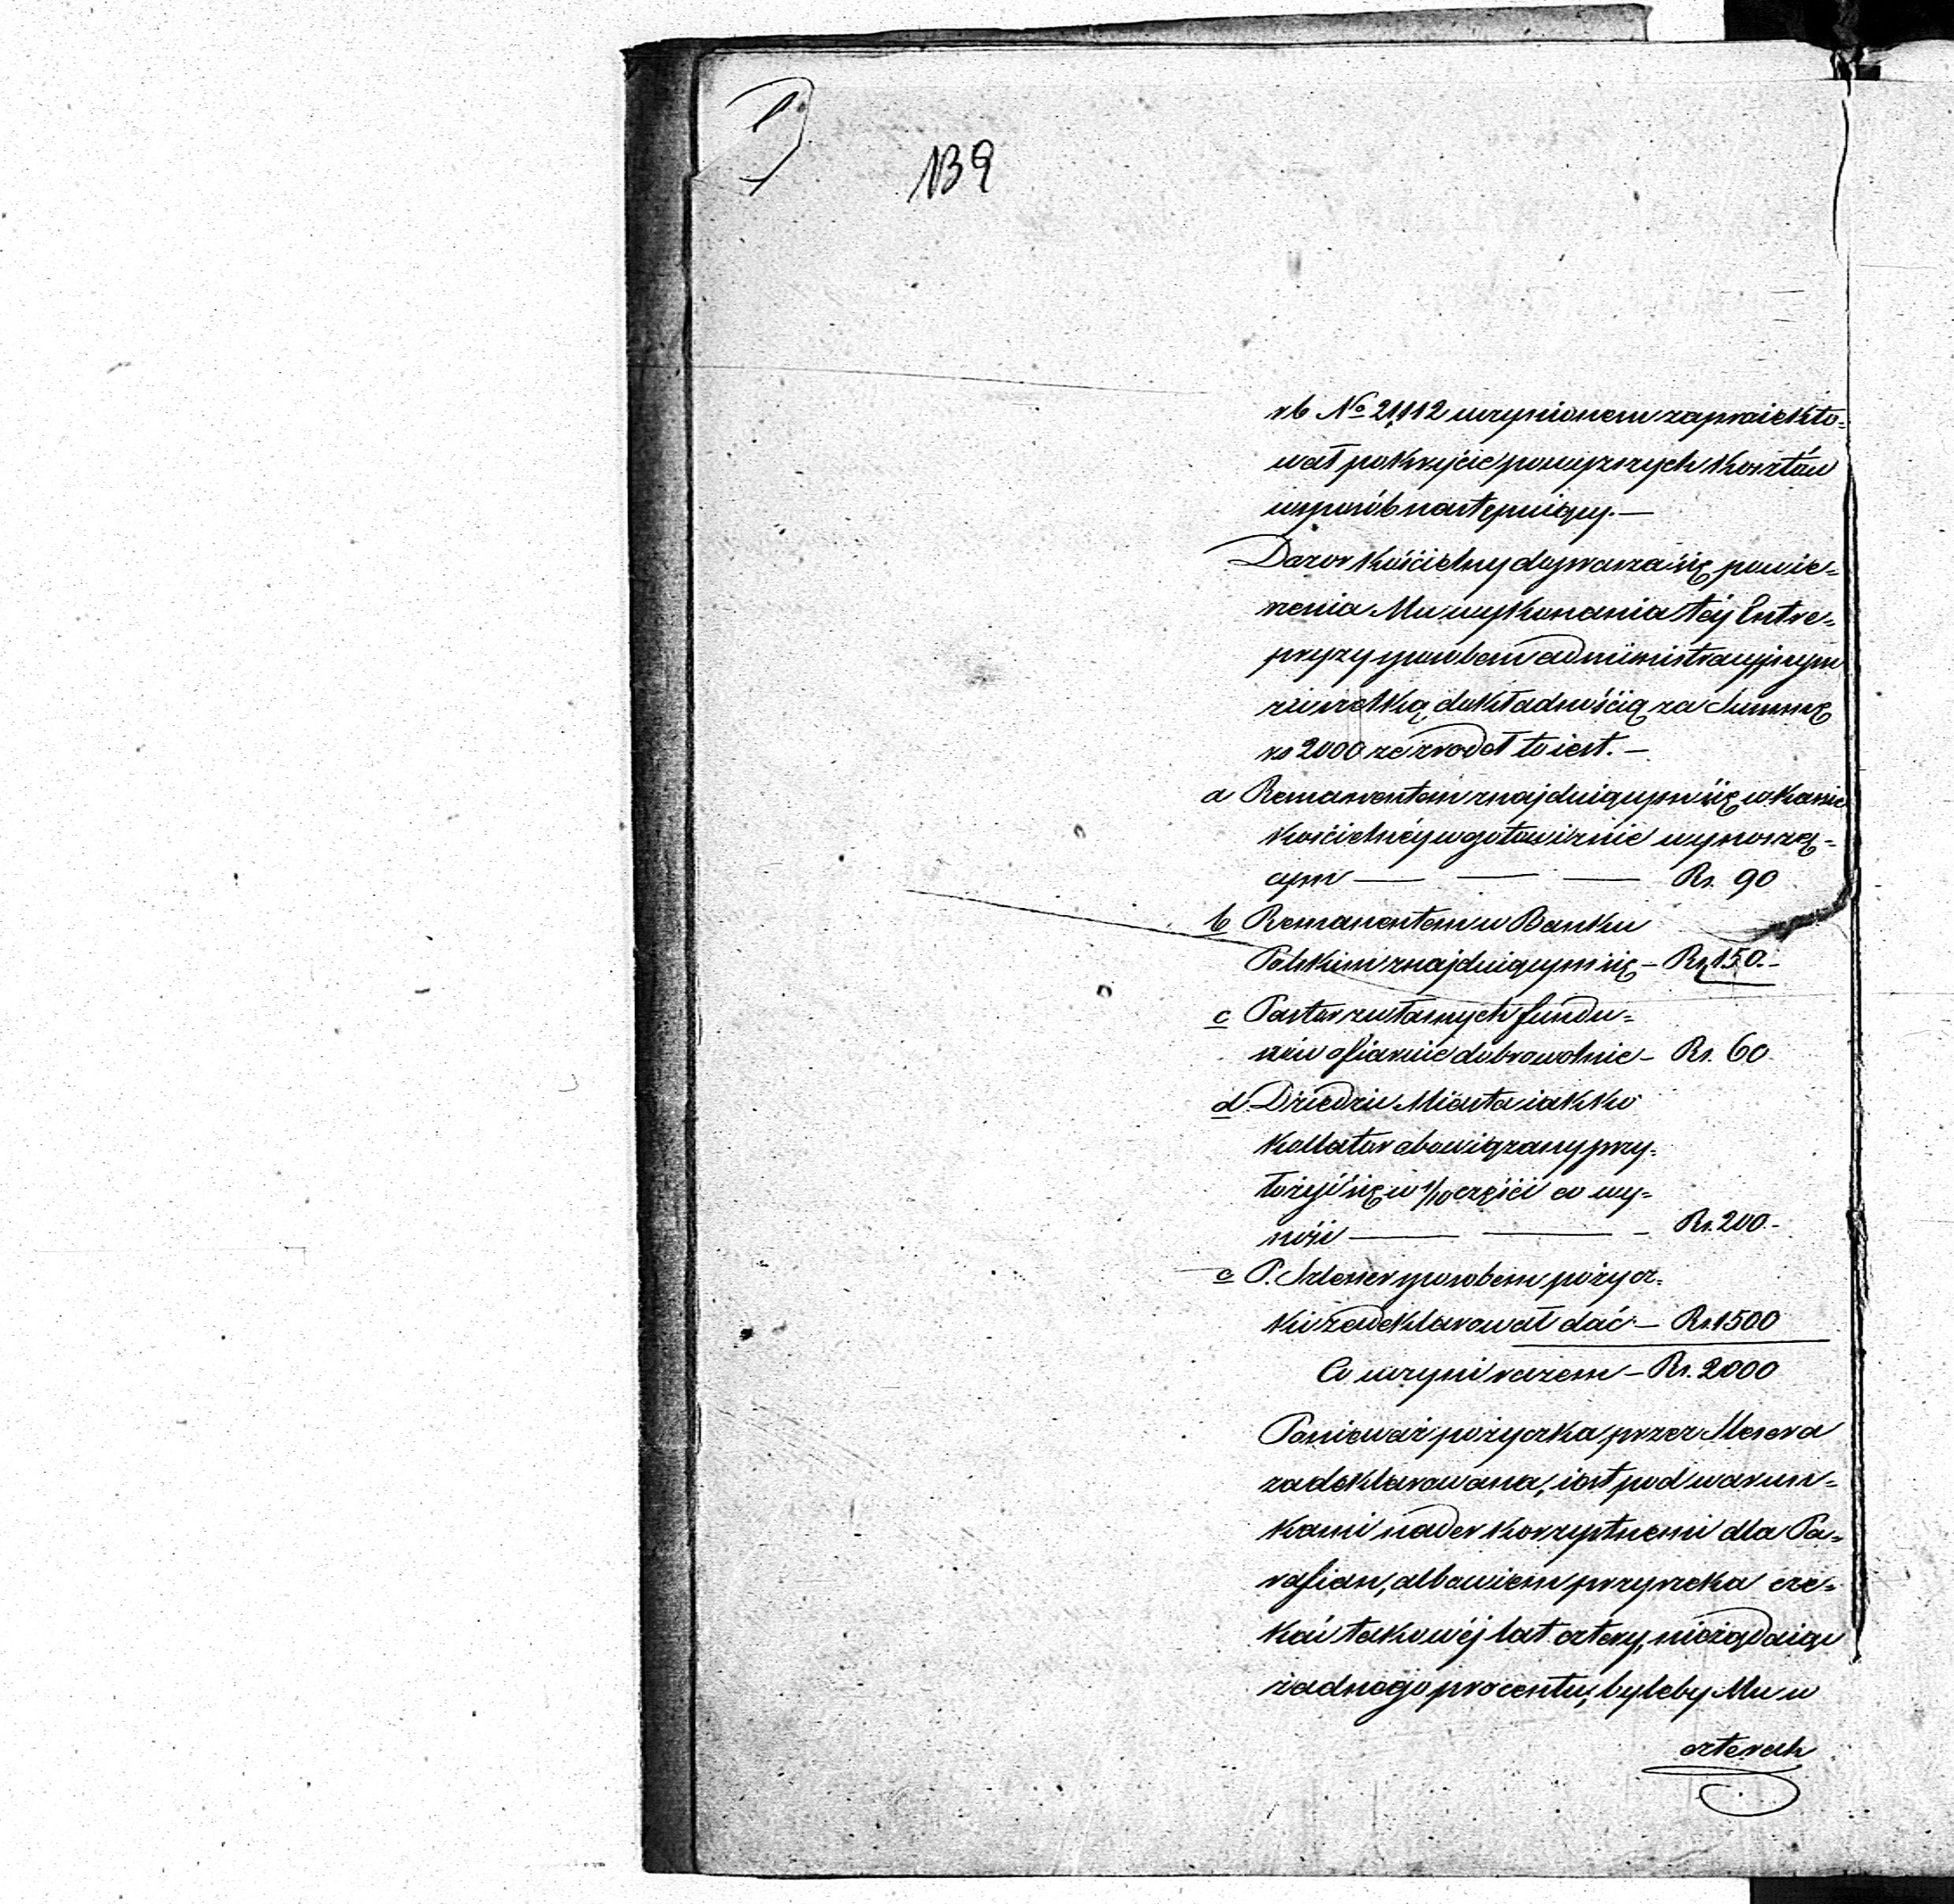 139
rb No 21112 uczynionem zaproiekto=
wał pokrycie powyższych kosztów
wsposób następuiący. —
Dozor kościelny doprasza się powie=
rzenia Mu wykonania téj Entre=
pryzy sposobem administracyjnym
zwszelką dokładnością za Summę
rs 2000 ze zrodeł to iest. —
a Remanentem znajduiącym się w kasie
kościelnéj w gotowiznie wynoszą=
cym — — — Rs. 90
b Remanentem w Banku
Polskim znajduiącym się — Rs. 150. –
c Pastor zwłasnych fundu=
szów ofiaruie dobrowolnie — Rs. 60
d Dziedzic Miasta iakko
kollator obowiązany przy=
łożyć się w 1/10 części co wy=
nosi — — – Rs. 200. –
e P. Szlesser sposobem pożycz=
ki zadeklarował dać — Rs. 1500
Co uczyni razem — Rs. 2000
Ponieważ pożyczka przez
zadeklarowana, iest pod warun=
kami nader korzystnemi dla Pa=
rafian, albowiem przyrzeka cze=
kać takowéj lat cztery, nieżądaiąc
żadnego procentu, byleby Mu w
czterech